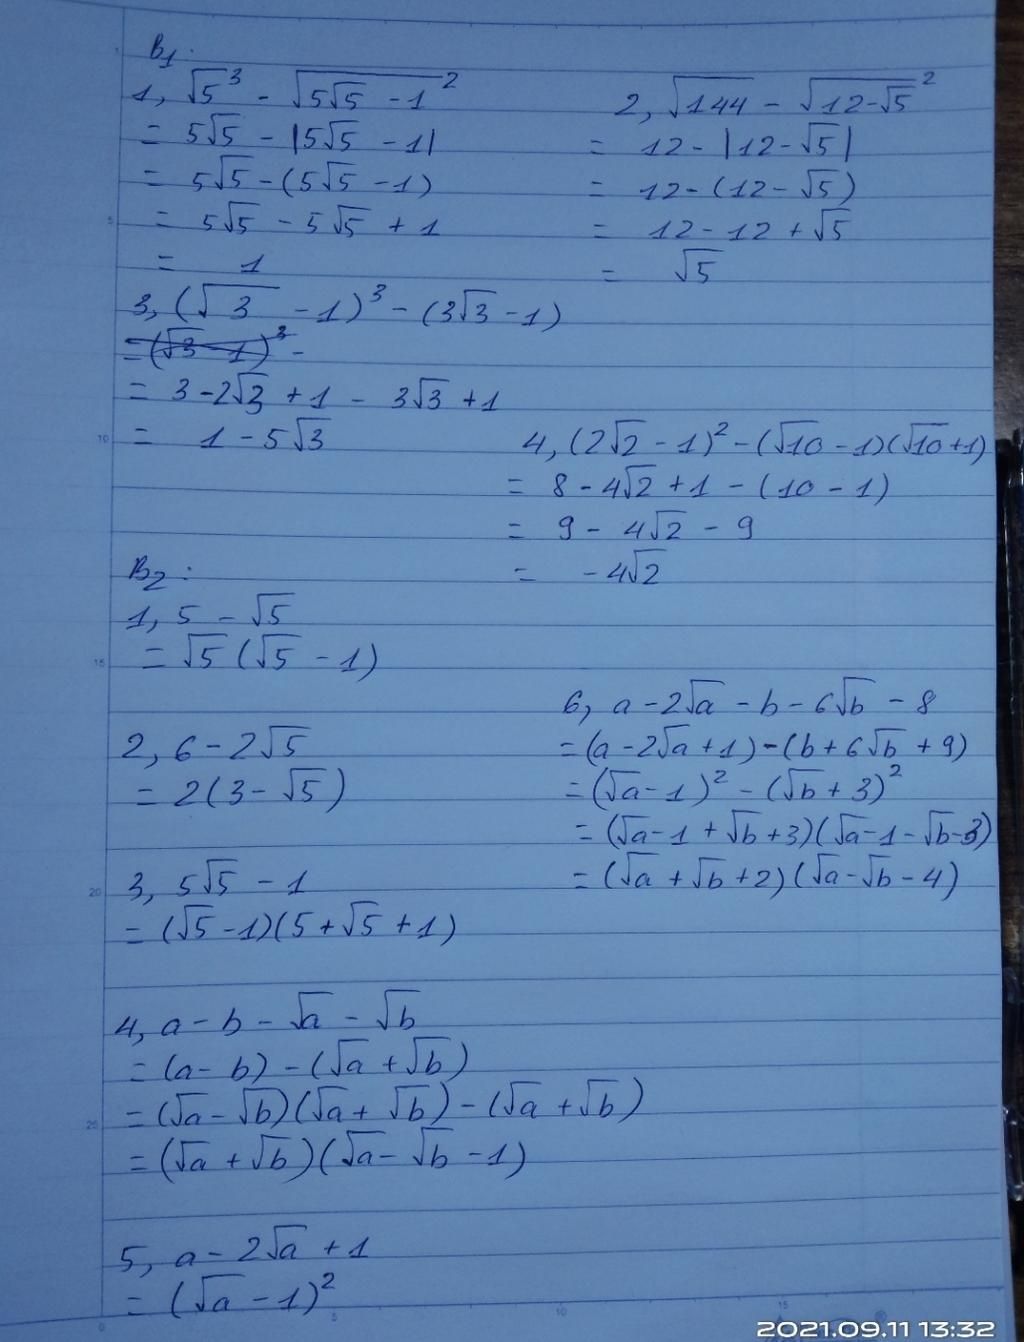 B1:
1, √5³ - √(5√5 - 1)²
= 5√5 - |5√5 - 1|
= 5√5 - (5√5 - 1)
= 5√5 - 5√5 + 1
= 1
2, √144 - √(12-√5)²
= 12 - |12-√5|
= 12 - (12 - √5)
= 12 - 12 + √5
= √5
3, (√3 - 1)³ - (3√3 - 1)
= (√3 - 1)³ -
= 3 - 2√3 + 1 - 3√3 + 1
= 1 - 5√3
4, (2√2 - 1)² - (√10 - 1)(√10 + 1)
= 8 - 4√2 + 1 - (10 - 1)
= 9 - 4√2 - 9
= -4√2
B2:
1, 5 - √5
= √5 (√5 - 1)
2, 6 - 2√5
= 2(3 - √5)
3, 5√5 - 1
= (√5 - 1)(5 + √5 + 1)
4, a - b - √a - √b
= (a - b) - (√a + √b)
= (√a - √b)(√a + √b) - (√a + √b)
= (√a + √b)(√a - √b - 1)
5, a - 2√a + 1
= (√a - 1)²
6, a - 2√a - b - 6√b - 8
= (a - 2√a + 1) - (b + 6√b + 9)
= (√a - 1)² - (√b + 3)²
= (√a - 1 + √b + 3)(√a - 1 - √b - 3)
= (√a + √b + 2)(√a - √b - 4)
2021.09.11 13:32